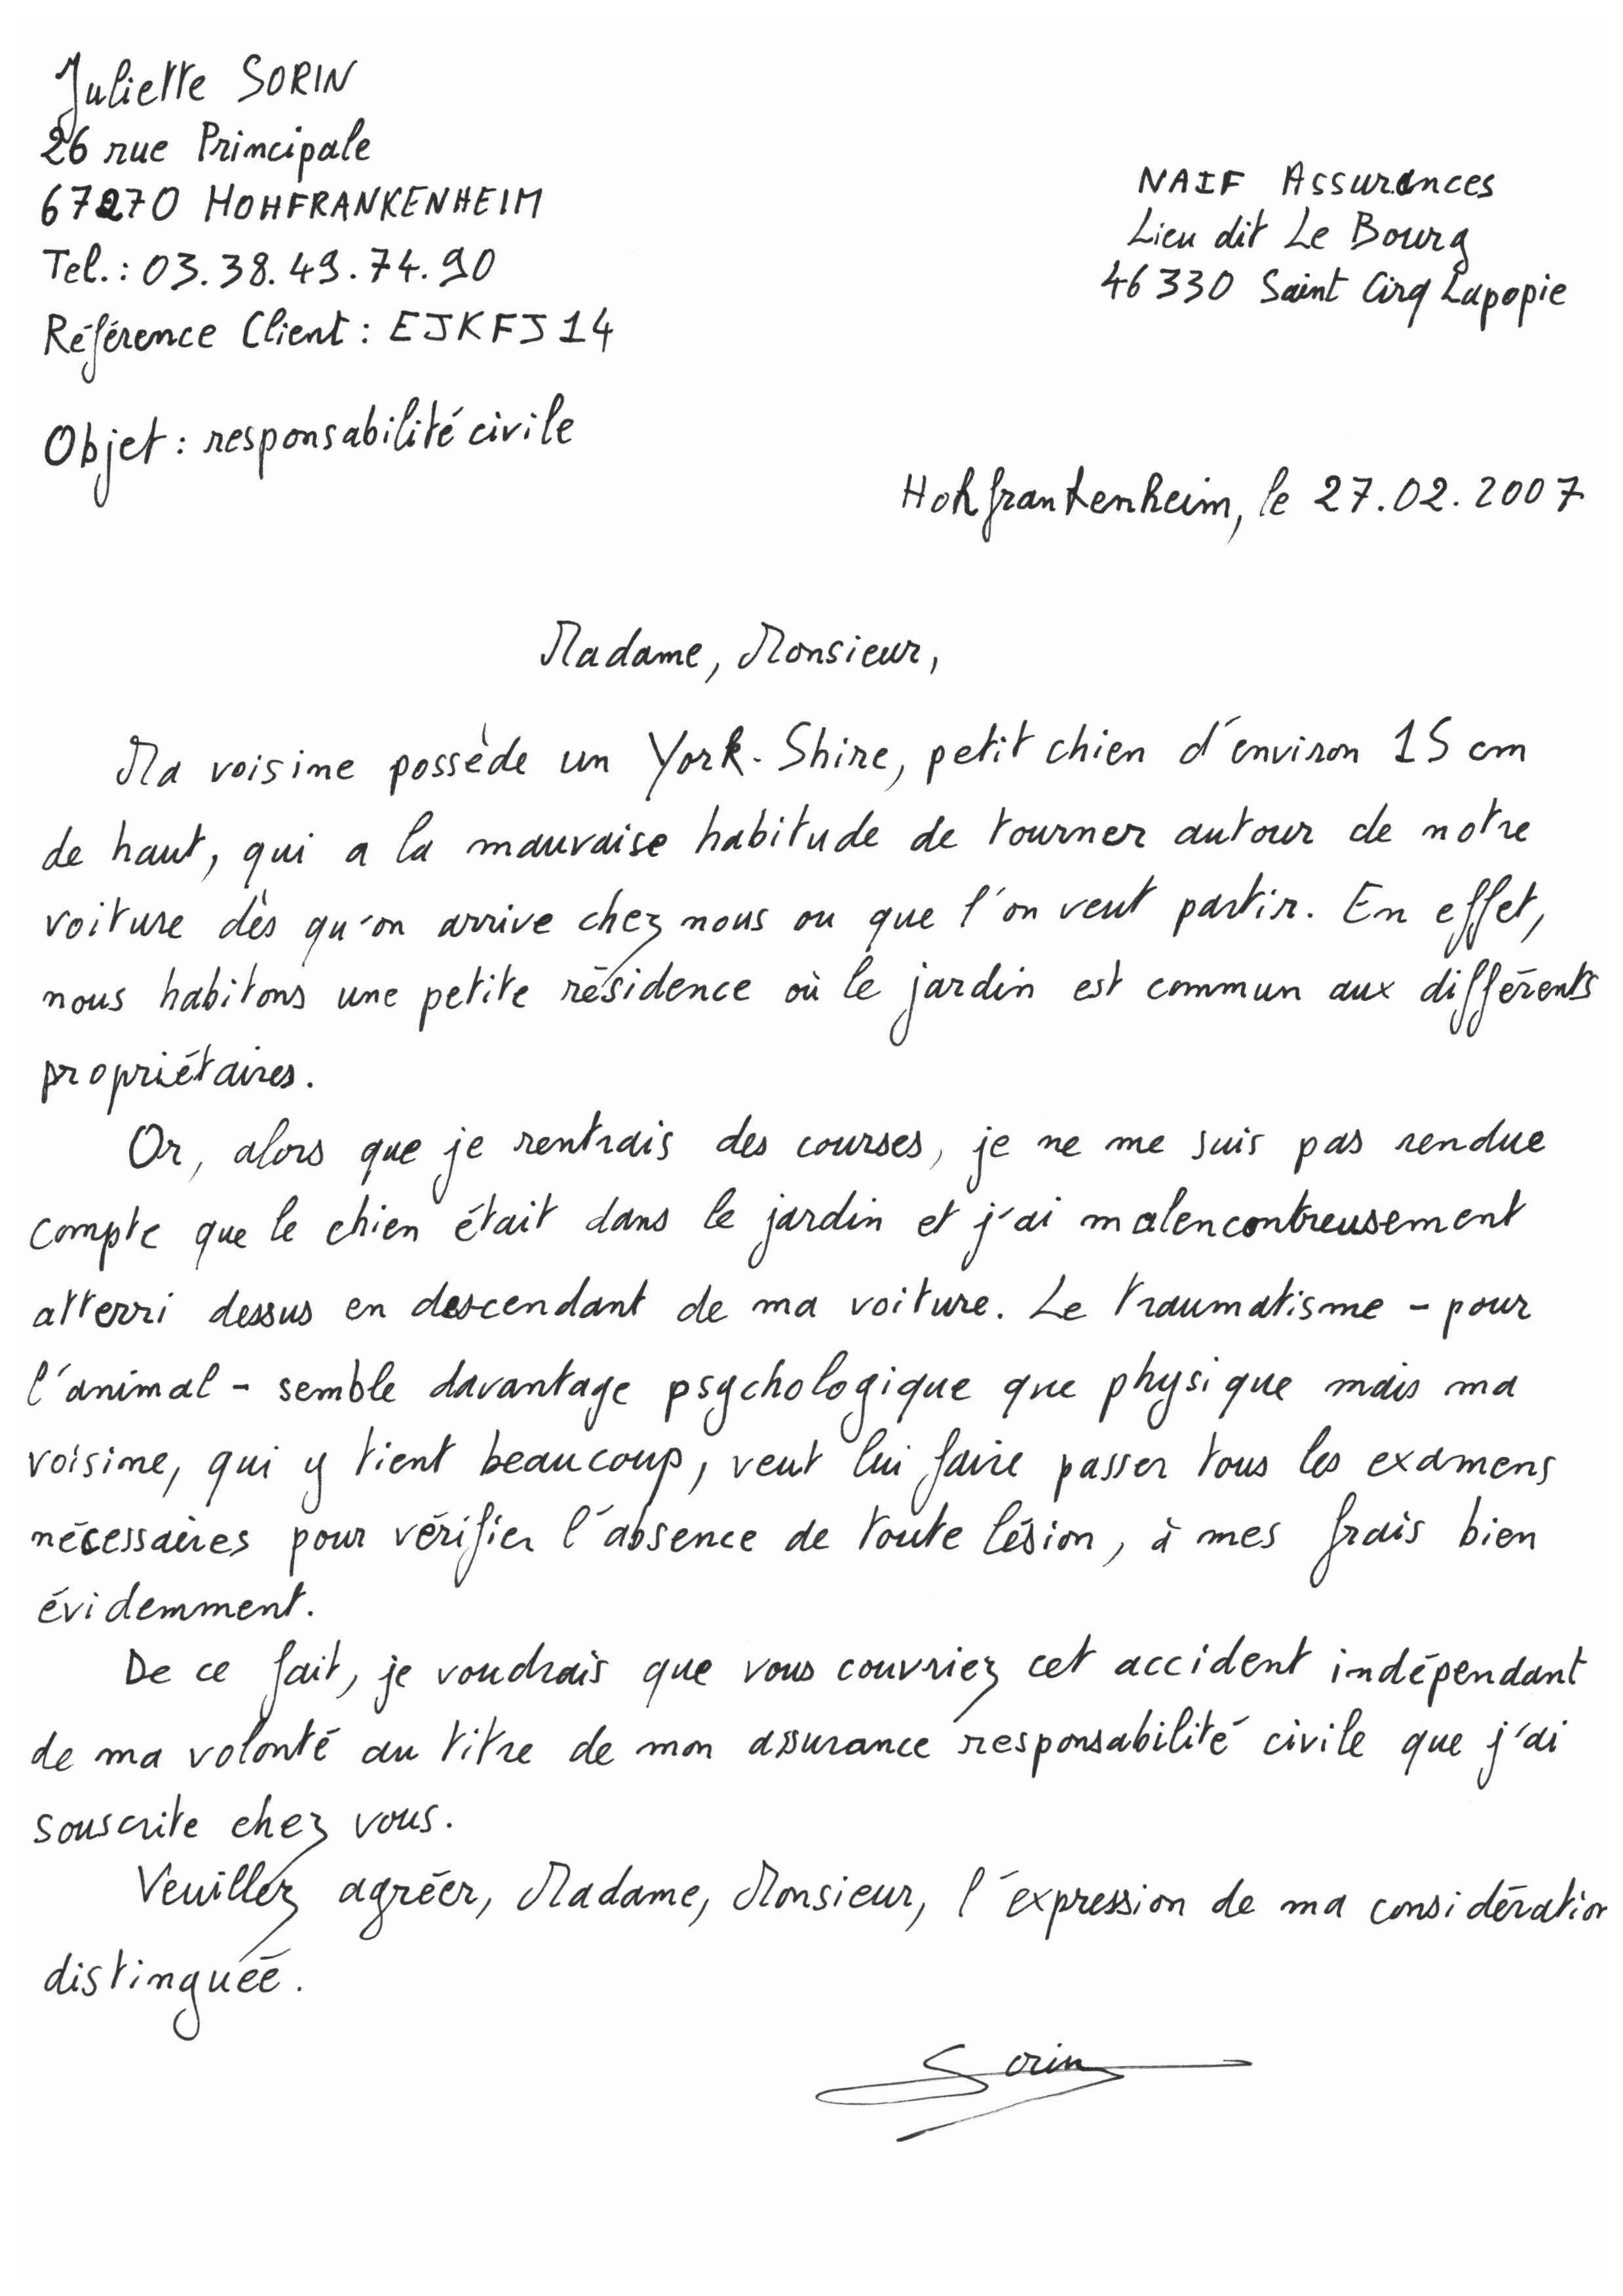 Juliette SORIN
26 rue Principale
67270 HOHFRANKENHEIM
Tel.: 03.38.49.74.90
Référence Client : EJKFJ14
NAIF Assurances
Lieu dit Le Bourg
46330 Saint Cirq Lapopie
Objet : responsabilité civile
Hohfrankenheim, le 27.02.2007
Madame, Monsieur,
Ma voisine possède un York-Shire, petit chien d'environ 15 cm
de haut, qui a la mauvaise habitude de tourner autour de notre
voiture dès qu'on arrive chez nous ou que l'on veut partir. En effet,
nous habitons une petite résidence où le jardin est commun aux différents
propriétaires.
Or, alors que je rentrais des courses, je ne me suis pas rendue
compte que le chien était dans le jardin et j'ai malencontreusement
atterri dessus en descendant de ma voiture. Le traumatisme - pour
l'animal - semble davantage psychologique que physique mais ma
voisine, qui y tient beaucoup, veut lui faire passer tous les examens
nécessaires pour vérifier l'absence de toute lésion, à mes frais bien
évidemment.
De ce fait, je voudrais que vous couvriez cet accident indépendant
de ma volonté au titre de mon assurance responsabilité civile que j'ai
souscrite chez vous.
Veuillez agréer, Madame, Monsieur, l'expression de ma considération
distinguée.
Sorin